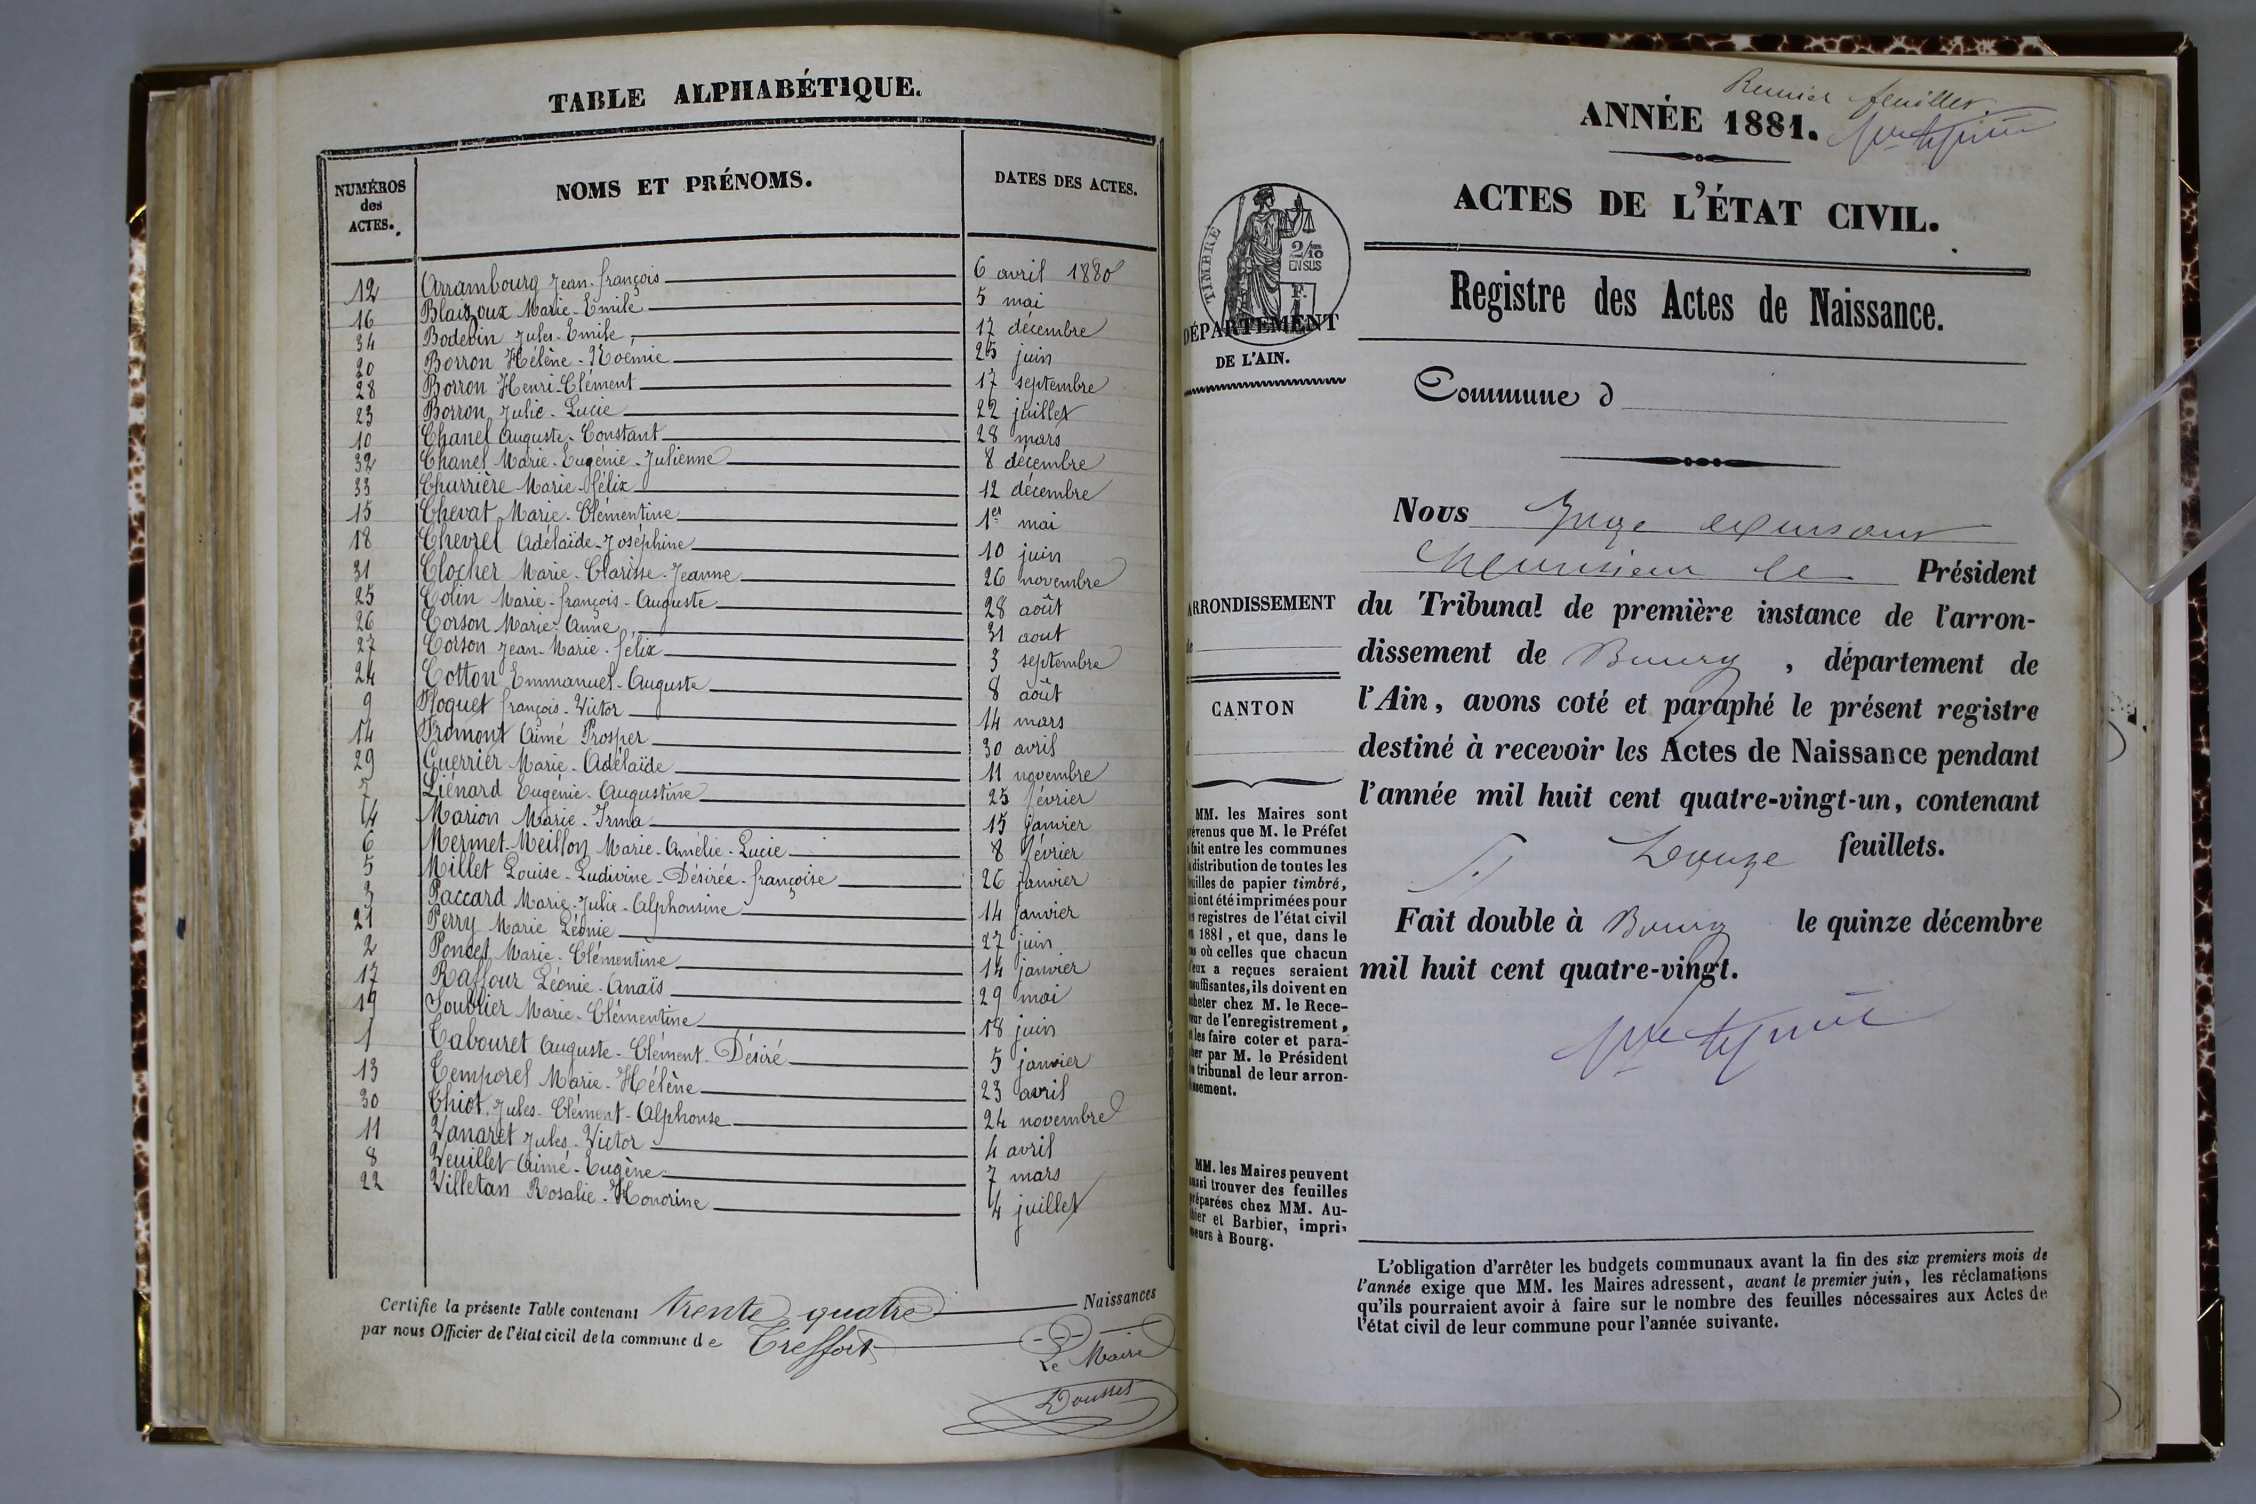 TABLE ALPHABÉTIQUE.
NUMÉROS des ACTES.
NOMS ET PRÉNOMS.
DATES DES ACTES.
12 Arrambourg Jean-françois 6 avril 1880
16 Blaizoux Marie-Emile 5 mai
34 Bodevin Jules-Emile, 17 décembre
20 Borron Hélène-Noémie 25 juin
28 Borron Henri-Clément 17 septembre
23 Borron Julie-Lucie 22 juillet
10 Chanel Auguste-Constant 28 mars
32 Chanel Marie-Eugénie-Julienne 8 décembre
33 Charrière Marie-félix 12 décembre
15 Chevat Marie-Clémentine 1er mai
18 Chevrel Adélaide-Joséphine 10 juin
31 Clocher Marie-Clarisse-Jeanne 26 novembre
25 Colin Marie-françois-Auguste 28 août
26 Corson Marie-Anne 31 aout
27 Corson Jean-Marie-félix 3 septembre
24 Cotton Emmanuel-Auguste 8 août
9 floquet françois-Victor 14 mars
14 Fromont Aimé Prosper 30 avril
29 Guerrier Marie-Adélaïde 11 novembre
7 Liénard Eugénie-Augustine 25 février
4 Marion Marie-Irma 15 janvier
6 Mermet-Meillon Marie-Amélie-Lucie 8 février
5 Millet Louise-Ludivine-Désirée-françoise 26 janvier
3 Paccard Marie-Julie-Alphonsine 14 janvier
21 Perry Marie Léonie 27 juin
2 Poncet Marie-Clémentine 14 janvier
17 Raffour Léonie-Anaïs 29 mai
19 Soudrier Marie-Clémentine 18 juin
1 Tabouret Auguste-Clément-Désiré 5 janvier
13 Temporel Marie-Hélène 23 avril
30 Thiot Jules-Clément-Alphonse 24 novembre
11 Vanaret Jules-Victor 4 avril
8 Veuillet Aimé-Eugène 7 mars
22 Villetan Rosalie-Honorine 4 juillet
Certifie la présente Table contenant trente quatre Naissances
par nous Officier de l'état civil de la commune de Treffort
Le Maire
Dousset
feuillet
ANNÉE 1881.
ACTES DE L'ÉTAT CIVIL.
Registre des Actes de Naissance.
TIMBRE
2/10
EN SUS
DÉPARTEMENT
DE L'AIN.
Commune d
Nous Juge
Monsieur le Président
du Tribunal de première instance de l'arron-
dissement de Bourg, département de
l'Ain, avons coté et paraphé le présent registre
destiné à recevoir les Actes de Naissance pendant
l'année mil huit cent quatre-vingt-un, contenant
Douze feuillets.
Fait double à Bourg le quinze décembre
mil huit cent quatre-vingt.
ARRONDISSEMENT
de
CANTON
d
MM. les Maires sont
prévenus que M. le Préfet
a fait entre les communes
la distribution de toutes les
feuilles de papier timbré,
qui ont été imprimées pour
les registres de l'état civil
en 1881, et que, dans le
cas où celles que chacun
d'eux a reçues seraient
insuffisantes, ils doivent en
acheter chez M. le Rece-
veur de l'enregistrement,
et les faire coter et para-
pher par M. le Président
du tribunal de leur arron-
dissement.
MM. les Maires peuvent
aussi trouver des feuilles
préparées chez MM. Au-
thier et Barbier, impri-
meurs à Bourg.
L'obligation d'arrêter les budgets communaux avant la fin des six premiers mois de
l'année exige que MM. les Maires adressent, avant le premier juin, les réclamations
qu'ils pourraient avoir à faire sur le nombre des feuilles nécessaires aux Actes de
l'état civil de leur commune pour l'année suivante.